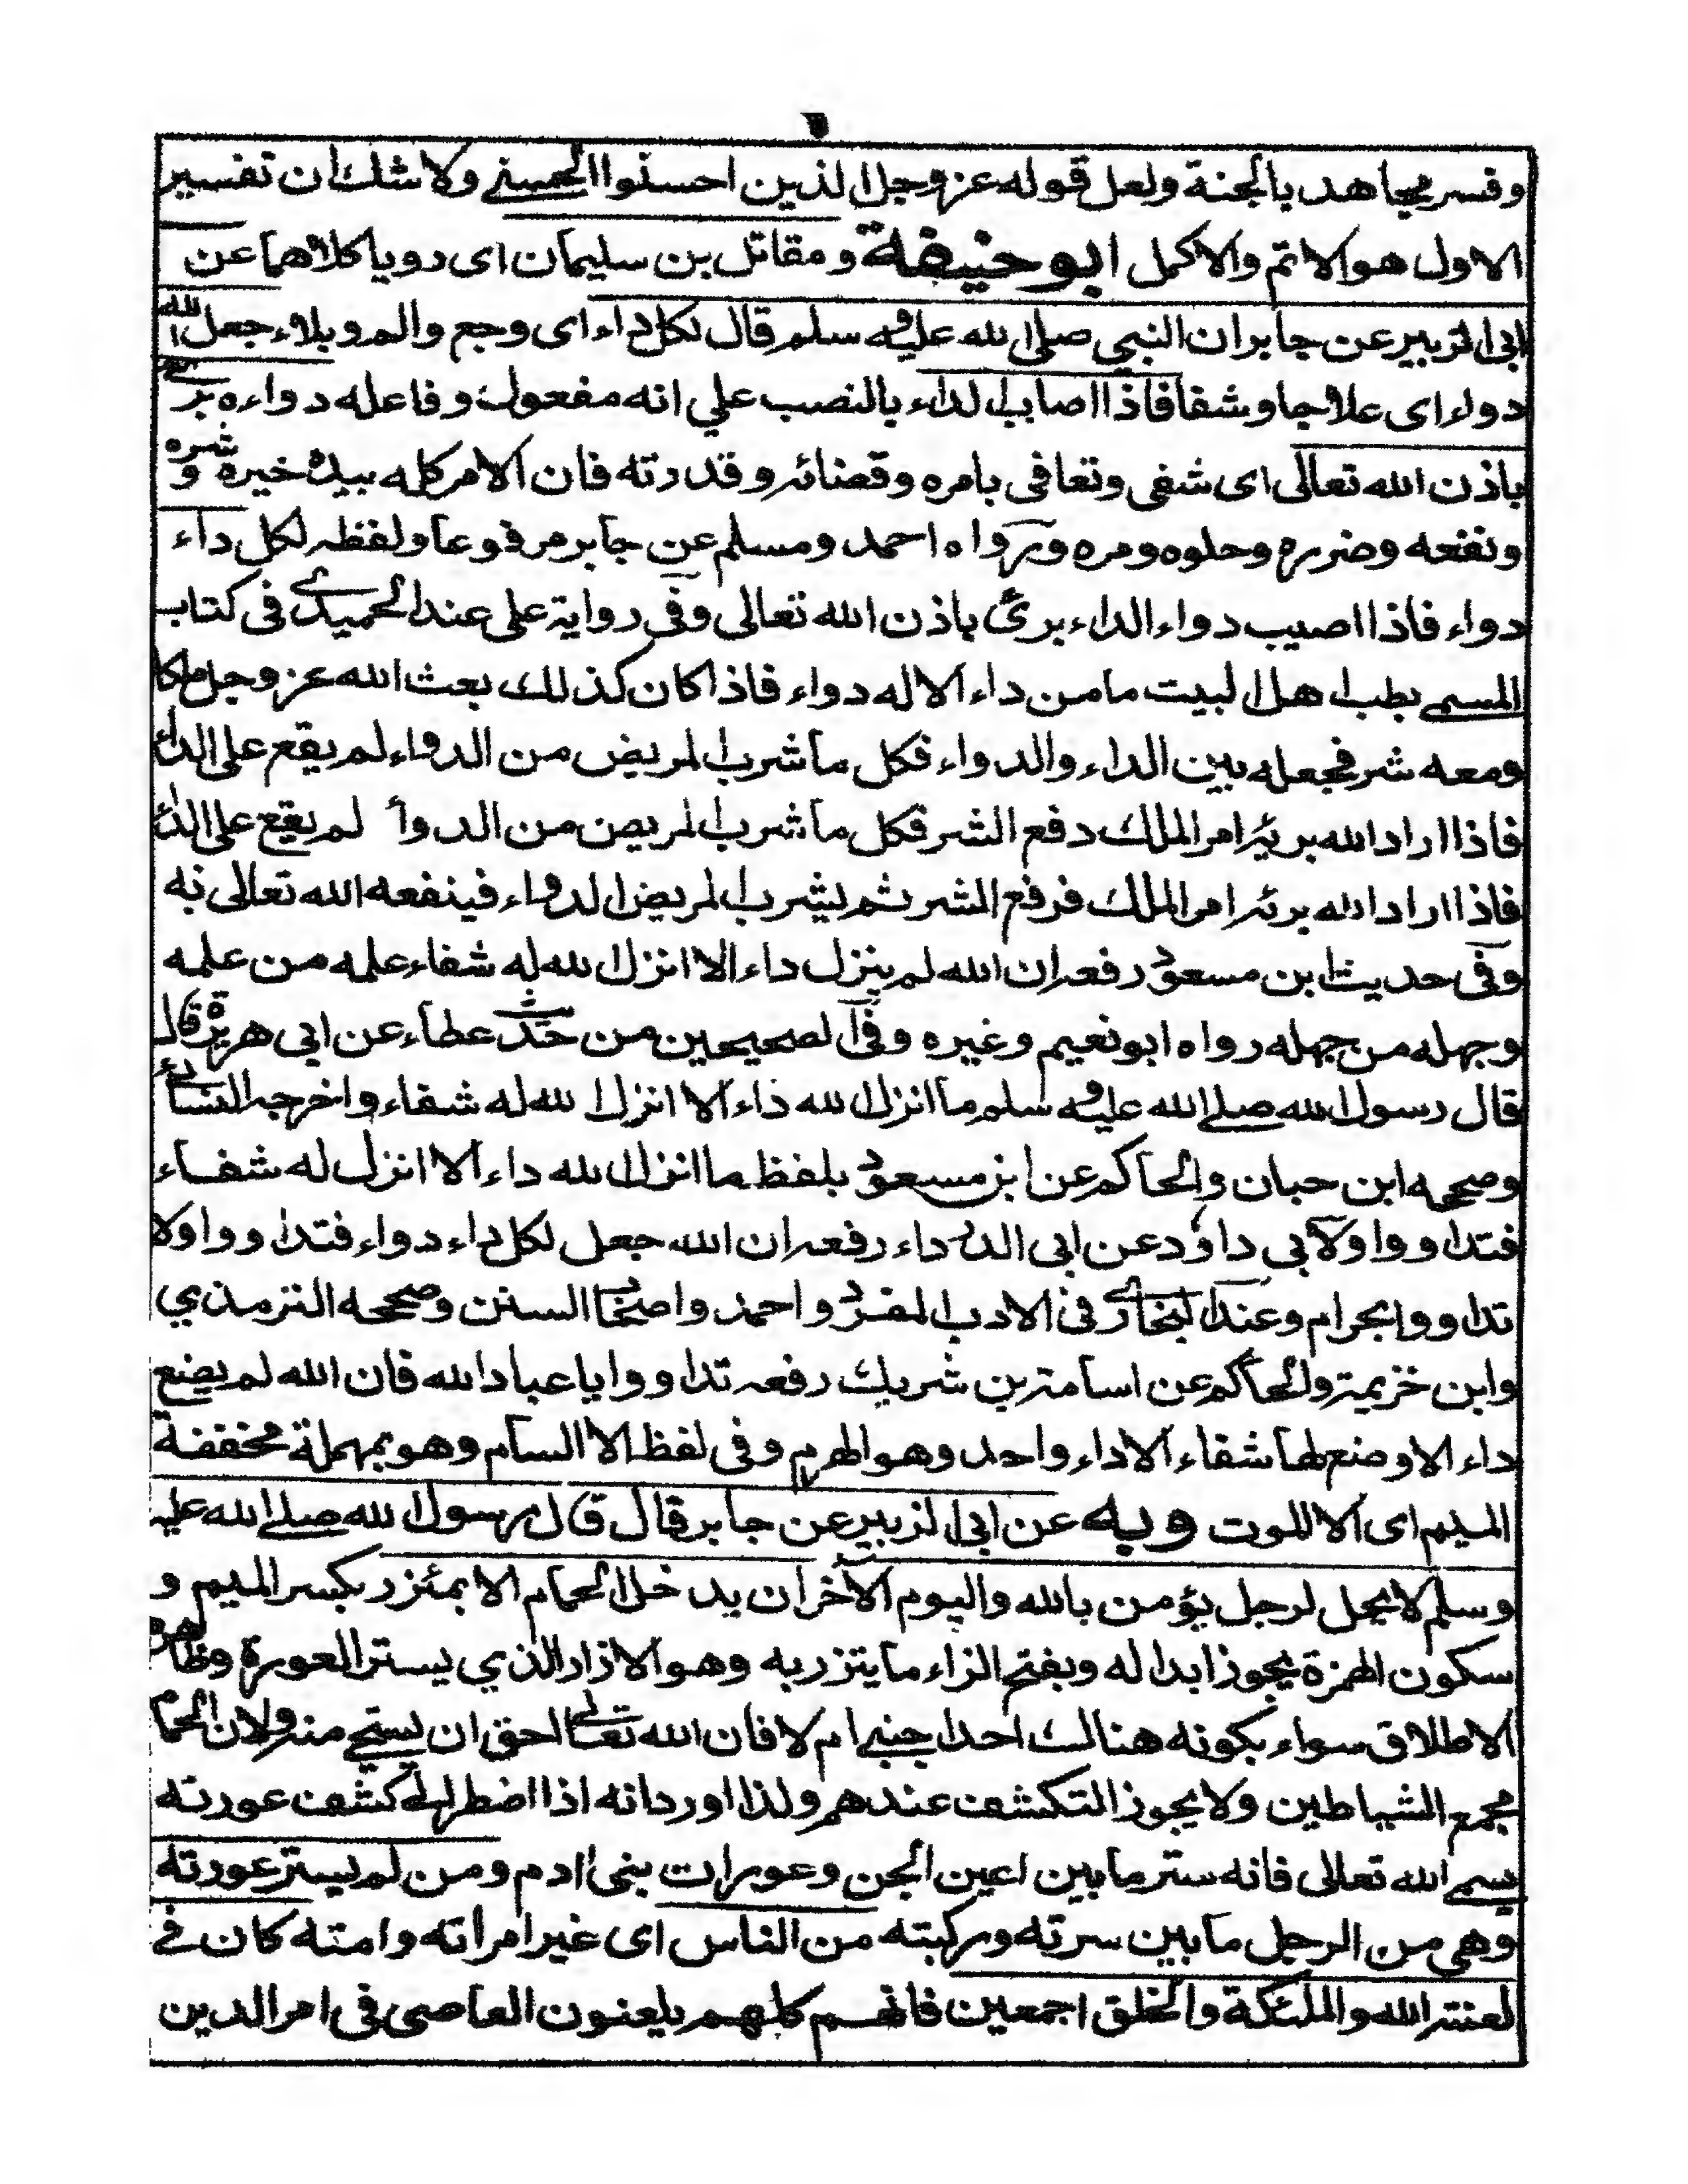 وفسر مجاهد بالجنة ولعل قوله عز وجل الذين احسنوا الحسنى ولا شك ان تفسير
الاول هو الاتم والاكمل ابو حنيفة ومقاتل بن سليمان اى رويا كلاهما عن
ابى الزبير عن جابر ان النبي صلى الله عليه وسلم قال لكل داء اى وجع والم وبلاء جعل الله
دواء اى علاجا وشفا فاذا اصاب الداء بالنصب على انه مفعول وفاعله دواءه برئ
باذن الله تعالى اى شفى وتعافى بامره وقضائه وقدرته فان الامر كله بيده خيره وشره
ونفعه وضرره وحلوه ومره ورواه احمد ومسلم عن جابر مرفوعا ولفظه لكل داء
دواء فاذا اصيب دواء الداء برئ باذن الله تعالى وفى رواية على عند الحميدى فى كتاب
المسمى بطب اهل البيت ما من داء الا له دواء فاذا كان كذلك بعث الله عز وجل ملكا
ومعه شر فجعله بين الداء والدواء فكل ما شرب المريض من الدواء لم يقع على الداء
فاذا اراد الله برئه امر الملك دفع الشر فكل ما شرب المريض من الدوأ لم يقع على الداء
فاذا اراد الله برئه امر الملك فرفع الشر ثم يشرب المريض الدواء فينفعه الله تعالى به
وفى حديث ابن مسعود رفعه ان الله لم ينزل داء الا انزل الله له شفاء علمه من علمه
وجهله من جهله رواه ابو نعيم وغيره وفى الصحيحين من حديث عطاء عن ابى هريرة قال
قال رسول الله صلى الله عليه وسلم ما انزل الله داء الا انزل الله له شفاء واخرجه النسائى
وصححه ابن حبان والحاكم عن ابن مسعود بلفظ ما انزل الله داء الا انزل له شفاء
فتداووا ولابى داود عن ابى الدرداء رفعه ان الله جعل لكل داء دواء فتداووا ولا
تداووا بحرام وعند البخارى فى الادب المفرد واحمد واصحاب السنن وصححه الترمذي
وابن خزيمة والحاكم عن اسامة بن شريك رفعه تداووا يا عباد الله فان الله لم يضع
داء الا وضع لها شفاء الا داء واحد وهو الهرم وفى لفظ الا السام وهو بمهملة مخففة
الميم اى الا الموت وبه عن ابى الزبير عن جابر قال قال رسول الله صلى الله عليه
وسلم لا يحل لرجل يؤمن بالله واليوم الآخر ان يدخل الحمام الا بمئزر بكسر الميم و
سكون الهمزة يجوز ابداله وبفتح الزاء ما يتزر به وهو الازار الذي يستر العورة وظاهره
الاطلاق سواء بكونه هنالك احد اجنبى ام لا فان الله تعالى احق ان يستحى منه ولان الحمام
مجمع الشياطين ولا يجوز التكشف عندهم ولذا اورد انه اذا اضطر الى كشف عورته
يسمى الله تعالى فانه ستر ما بين اعين الجن وعورات بنى ادم ومن لم يستر عورته
وهي من الرجل ما بين سرته وركبته من الناس اى غير امراته وامته كان فى
لعنة الله والملئكة والخلق اجمعين فانهم كلهم يلعنون العاصى فى امر الدين